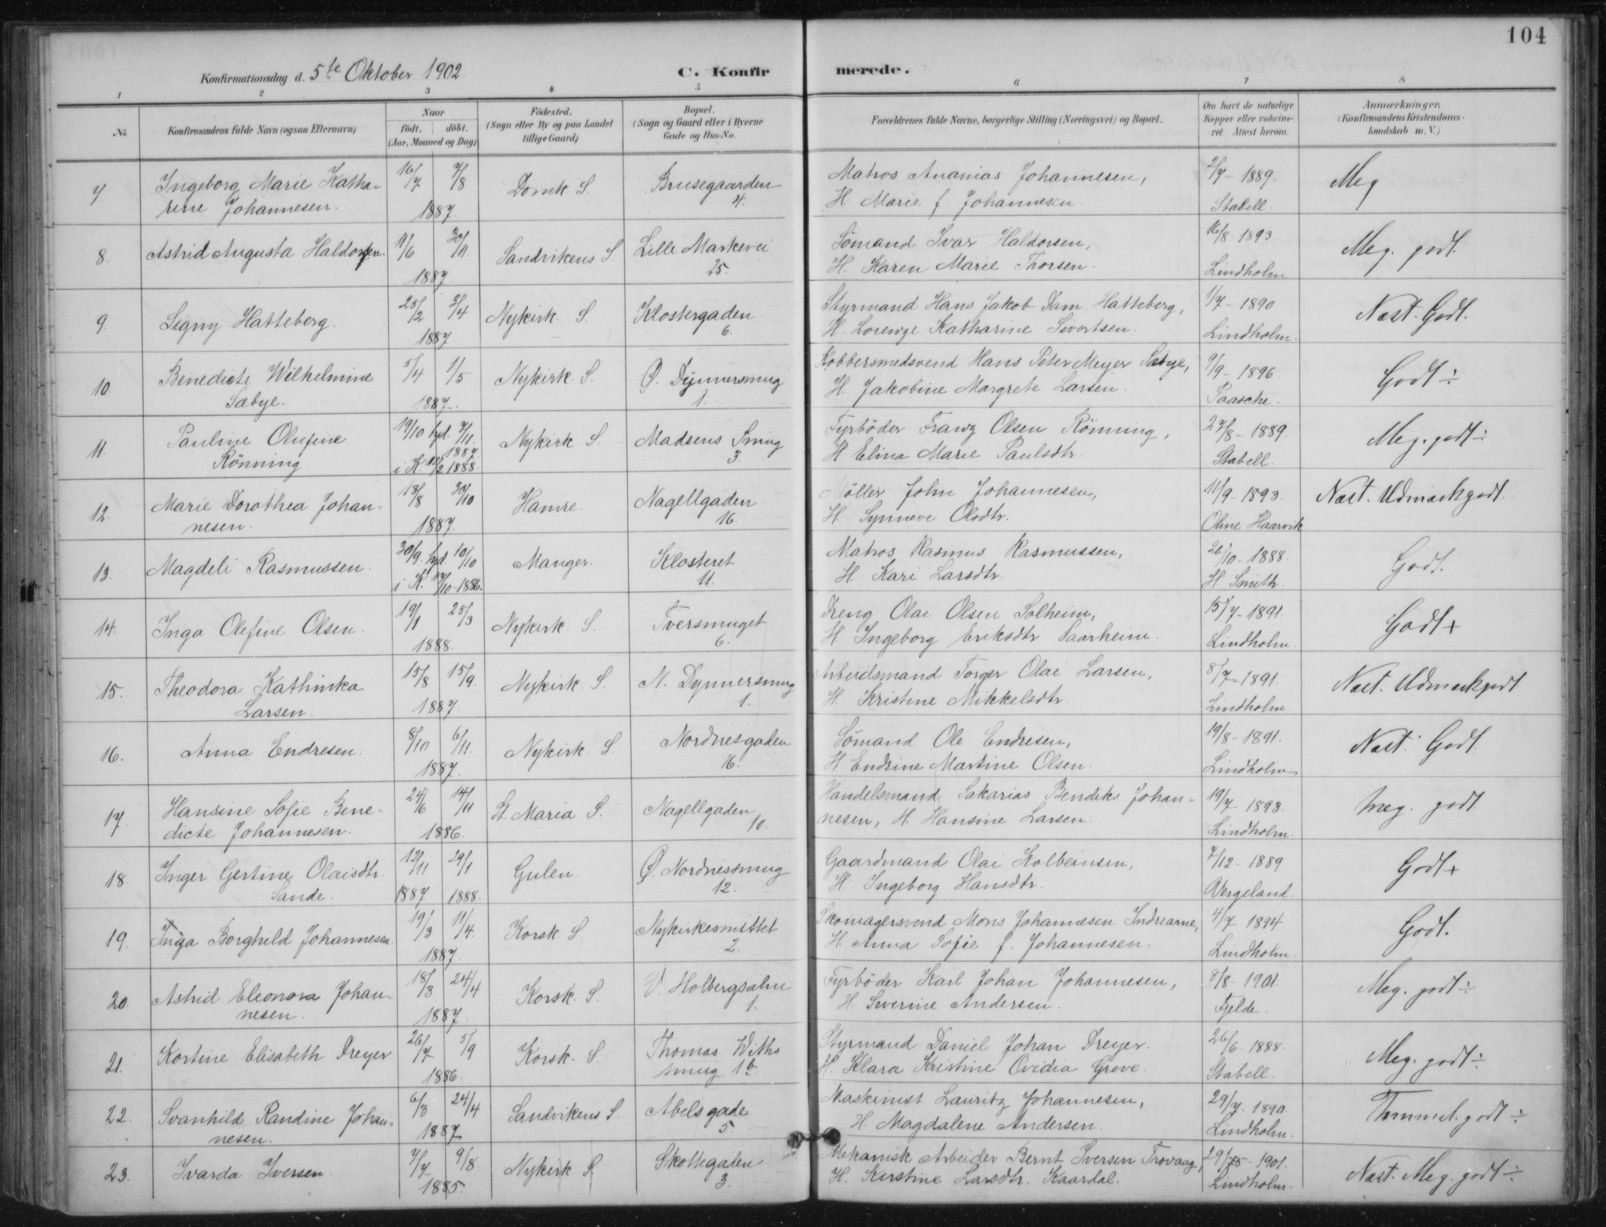 104
Konfirmationsdag d. 5te Oktober 1902.
C. Konfirmerede.
1 2 3 4 5 6 7 8
No. Konfirmandens fulde Navn (ogsaa Efternavn) Naar født. døbt. (Aar, Maaned og Dag) Fødested. (Sogn eller By og paa Landet tillige Gaard) Bopæl. (Sogn og Gaard eller i Byerne Gade og Hus-No. Forældrenes fulde Navne, borgerlige Stilling (Næringsvei) og Bopæl. Om havt de naturlige Kopper eller vaccineret. Attest herom. Anmærkninger. (Konfirmandens Kristendomskundskab m. V.)
7 Ingeborg Marie Katha- 16/7 7/8 Domk S. Brusegaarden Matros Ananias Johannesen, 2/7 - 1889. Meg
rine Johannesen. 1887. 4. H. Marie f. Johannesen. Stabell.
8. Astrid Augusta Haldorsen. 11/6 30/11 Sandvikens S Lille Markevei Sømand Ivar Haldorsen, 16/8 - 1893 Meg. godt.
1887 25. H. Karen Marie Thorsen. Lindholm
9. Signy Hatteberg. 25/2 3/4 Nykirk. S. Klostergaden Styrmand Hans Jakob Dam Hatteberg, 1/7 - 1890 Næst. Godt.
1887 6. H. Lorenze Katharine Sivertsen. Lindholm.
10 Benedicte Wilhelmine 5/4 1/5 Nykirk S. Ø. Dynnersmug Kobbersmedsvend Hans Peter Meyer Sæbye, 9/9 - 1896. Godt ÷
Sæbye. 1887. 1. H. Jakobine Margrete Larsen. Paasche.
11. Pauline Olufine 19/10 hjd. 7/11. 1887 Nykirk S. Madsens Smug Fyrbøder Franz Olsen Rønning, 27/8 - 1889. Meg. godt ÷
Rønning i K 12/2 1888 3. H Elina Marie Paulsdtr. Stabell.
12. Marie Dorothea Johan- 13/8 30/10 Hamre. Nagellgaden Møller John Johannesen, 11/9 - 1893. Næst. Udmærk godt.
nesen. 1887. 16. H. Synneve Olsdtr. Oline Haarvik
13. Magdeli Rasmussen. 30/9 hjd. 10/10 Manger. Klosteret Matros Rasmus Rasmussen, 26/10 - 1888. Godt.
i K. 17/10 - 1886. 11. H. Kari Larsdtr. H Smith.
14. Inga Olefine Olsen. 19/1 25/3 Nykirk. S. Tversmuget Dreng Olai Olsen Solheim, 15/7 - 1891. Godt +
1888. 6. H. Ingeborg Eriksdtr Saarheim. Lindholm
15. Theodora Kathinka 15/8 15/9 Nykirk. S. N. Dynnersmug Arbeidsmand Torger Olai Larsen, 8/7 - 1891 Næst. Udmærk godt
Larsen. 1887. 1. H. Kristine Mikkelsdtr. Lindholm.
16. Anna Endresen. 8/10 6/11. Nykirk. S. Nordnesgaden Sømand Ole Endresen, 19/8 - 1891. Næst. Godt
1887. 16. H Endrine Martine Olsen. Lindholm
17. Hansine Sofie Bene- 24/6 14/11 St. Maria S. Nagellgaden Handelsmand Sakarias Bendiks Johan- 19/7 - 1893. Meg. godt
dicte Johannesen. 1886. 10. nesen, H. Hansine Larsen. Lindholm.
18. Inger Gertine Olaisdtr 12/11 29/1 Gulen. Ø. Nordnessmug Gaardmand Olai Kolbeinsen, 7/12 - 1889 Godt +
Sande. 1887 1888. 12. H. Ingeborg Hansdtr. Vergeland.
19. Inga Borghild Johannesen 19/3 11/4. Korsk S. Nykirkesmittet Skomagersvend Mons Johannesen Indrearne, 4/7 - 1894 Godt.
1887. 2. H. Anna Sofie f. Johannesen. Lindholm
20. Astrid Eleonora Johan- 18/3 24/4 Korsk. S. V. Holbergsalm Fyrbøder Karl Johan Johannesen, 8/8 - 1901. Meg. godt ÷
nesen. 1887. 1. H. Severine Andersen. Fjelde.
21. Kortine Elisabeth Dreyer 26/7 5/9 Korsk. S. Thomas Withs Styrmand Daniel Johan Dreyer. 26/6 - 1888. Meg. godt ÷
1886. smug 1b H. Klara Kristine Ovidia Greve. Stabell.
22. Svanhild Randine Johan- 6/3 24/4 Sandvikens S. Abelsgade Maskinist Lauritz Johannesen, 29/7. 1890. Temmel. godt ÷
nesen. 1887 5. H. Magdalene Andersen. Lindholm.
23. Ivarda Iversen 7/7 9/8 Nykirk S Skottegaden Mekanisk Arbeider Bernt Iversen Trovaag, 29/5 - 1901. Næst. Meg. godt ÷
1885. 3. H. Kirstine Larsdtr. Kaardal. Lindholm.